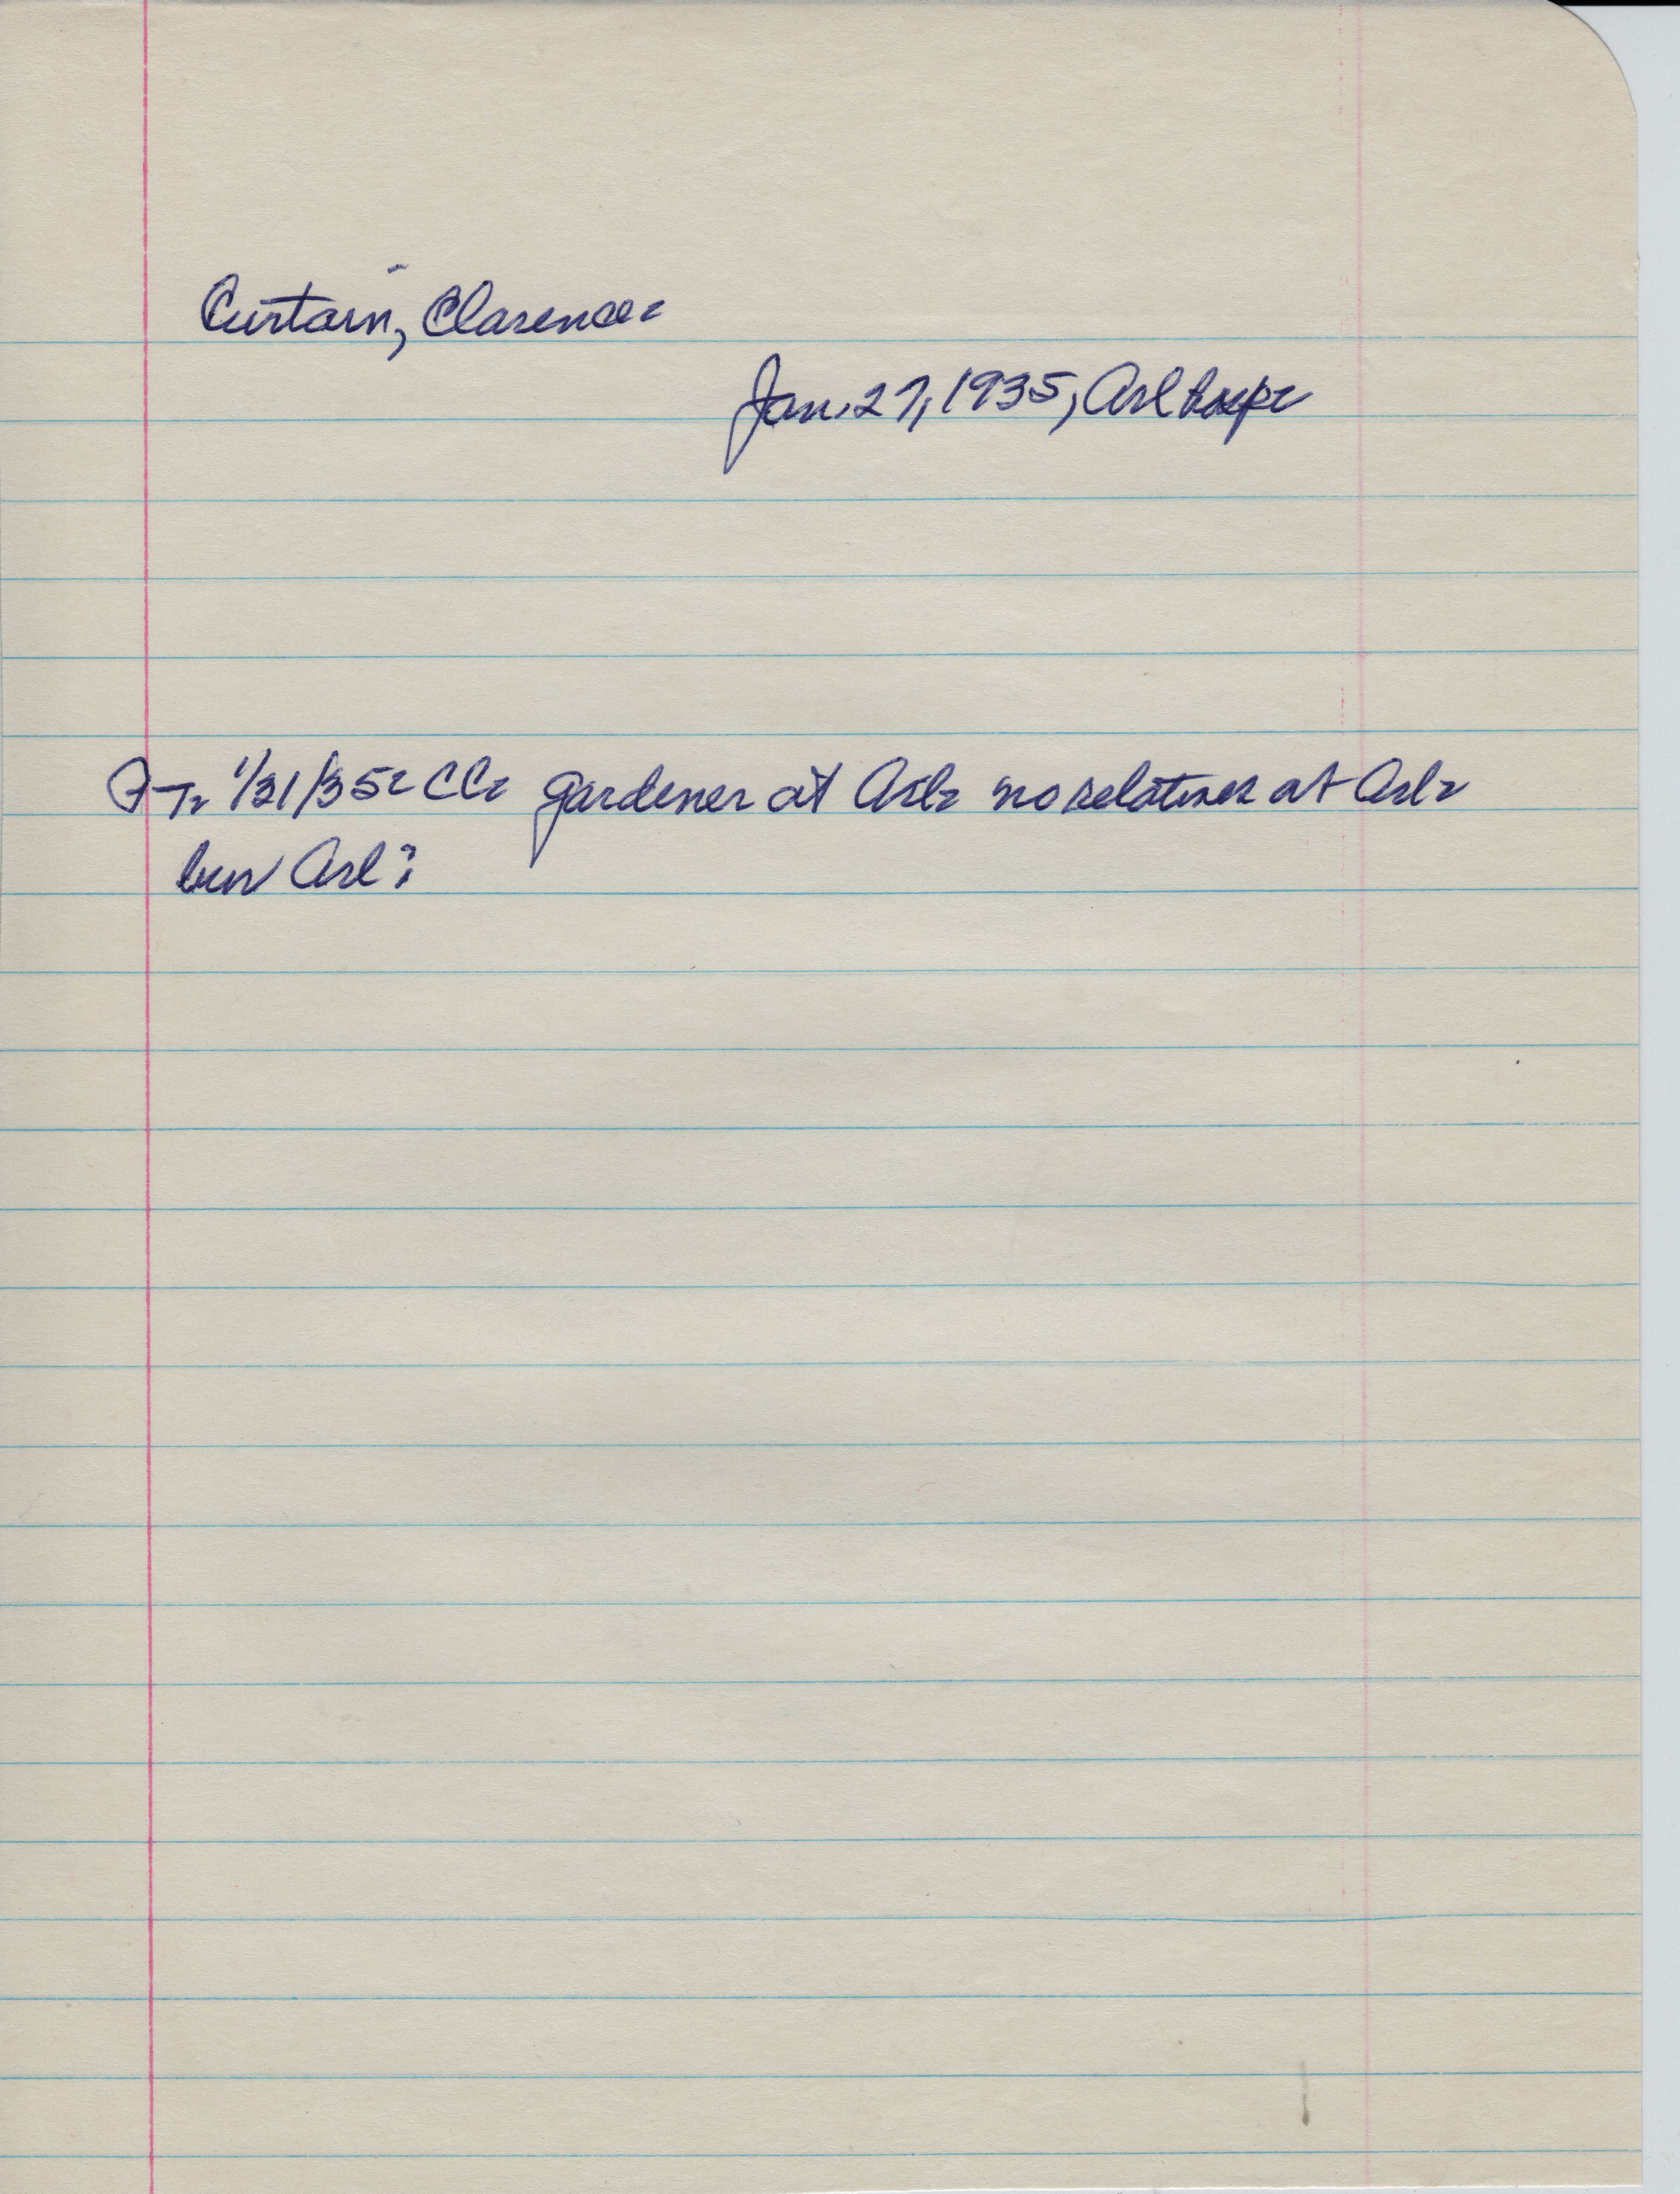 Curtain, Clarence:
Jan. 27, 1935, Arl hosp:
A-T: 1/31/35: CC: gardener at Arl: no relatives at Arl:
bur Arl?